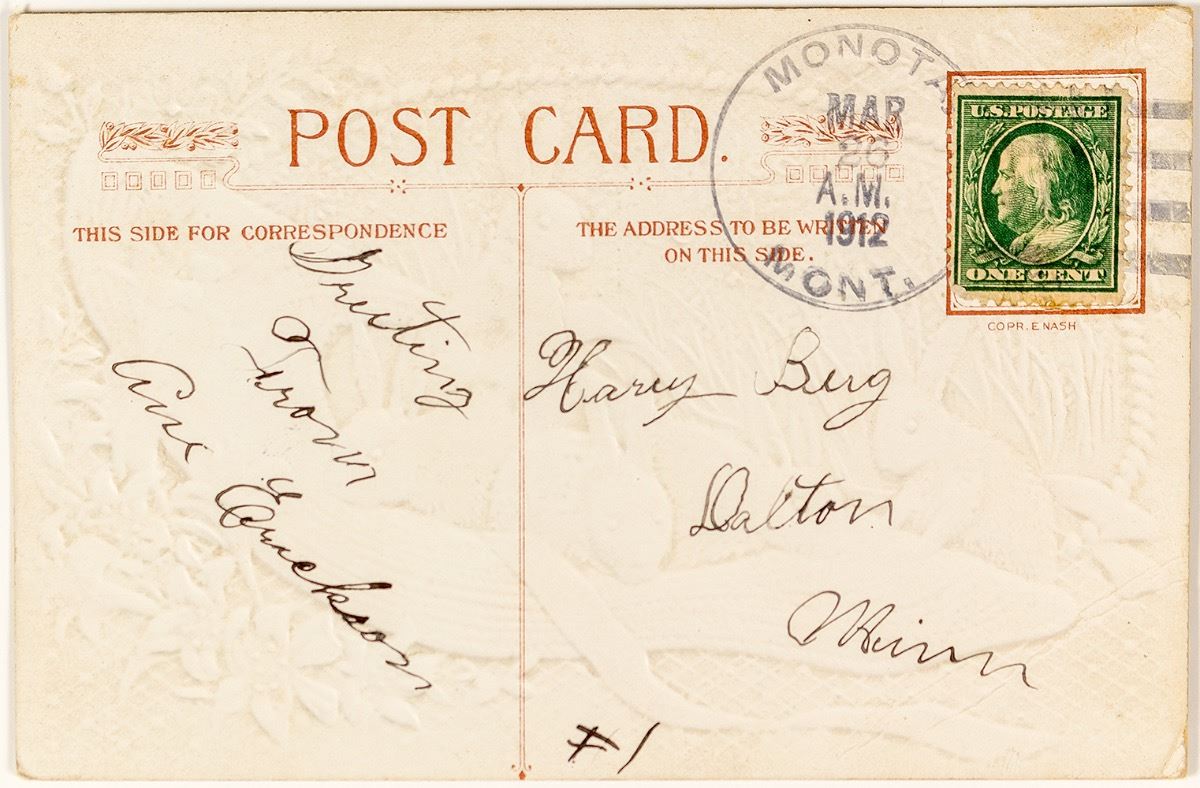 POST CARD.
THIS SIDE FOR CORRESPONDENCE
THE ADDRESS TO BE WRITTEN
ON THIS SIDE.
MONOTA
MAR
26
A.M.
1912
MONT.
U.S. POSTAGE
ONE CENT
COPR. E NASH
Greeting
From
Erickson
Harry Berg
Dalton
Minn
#1